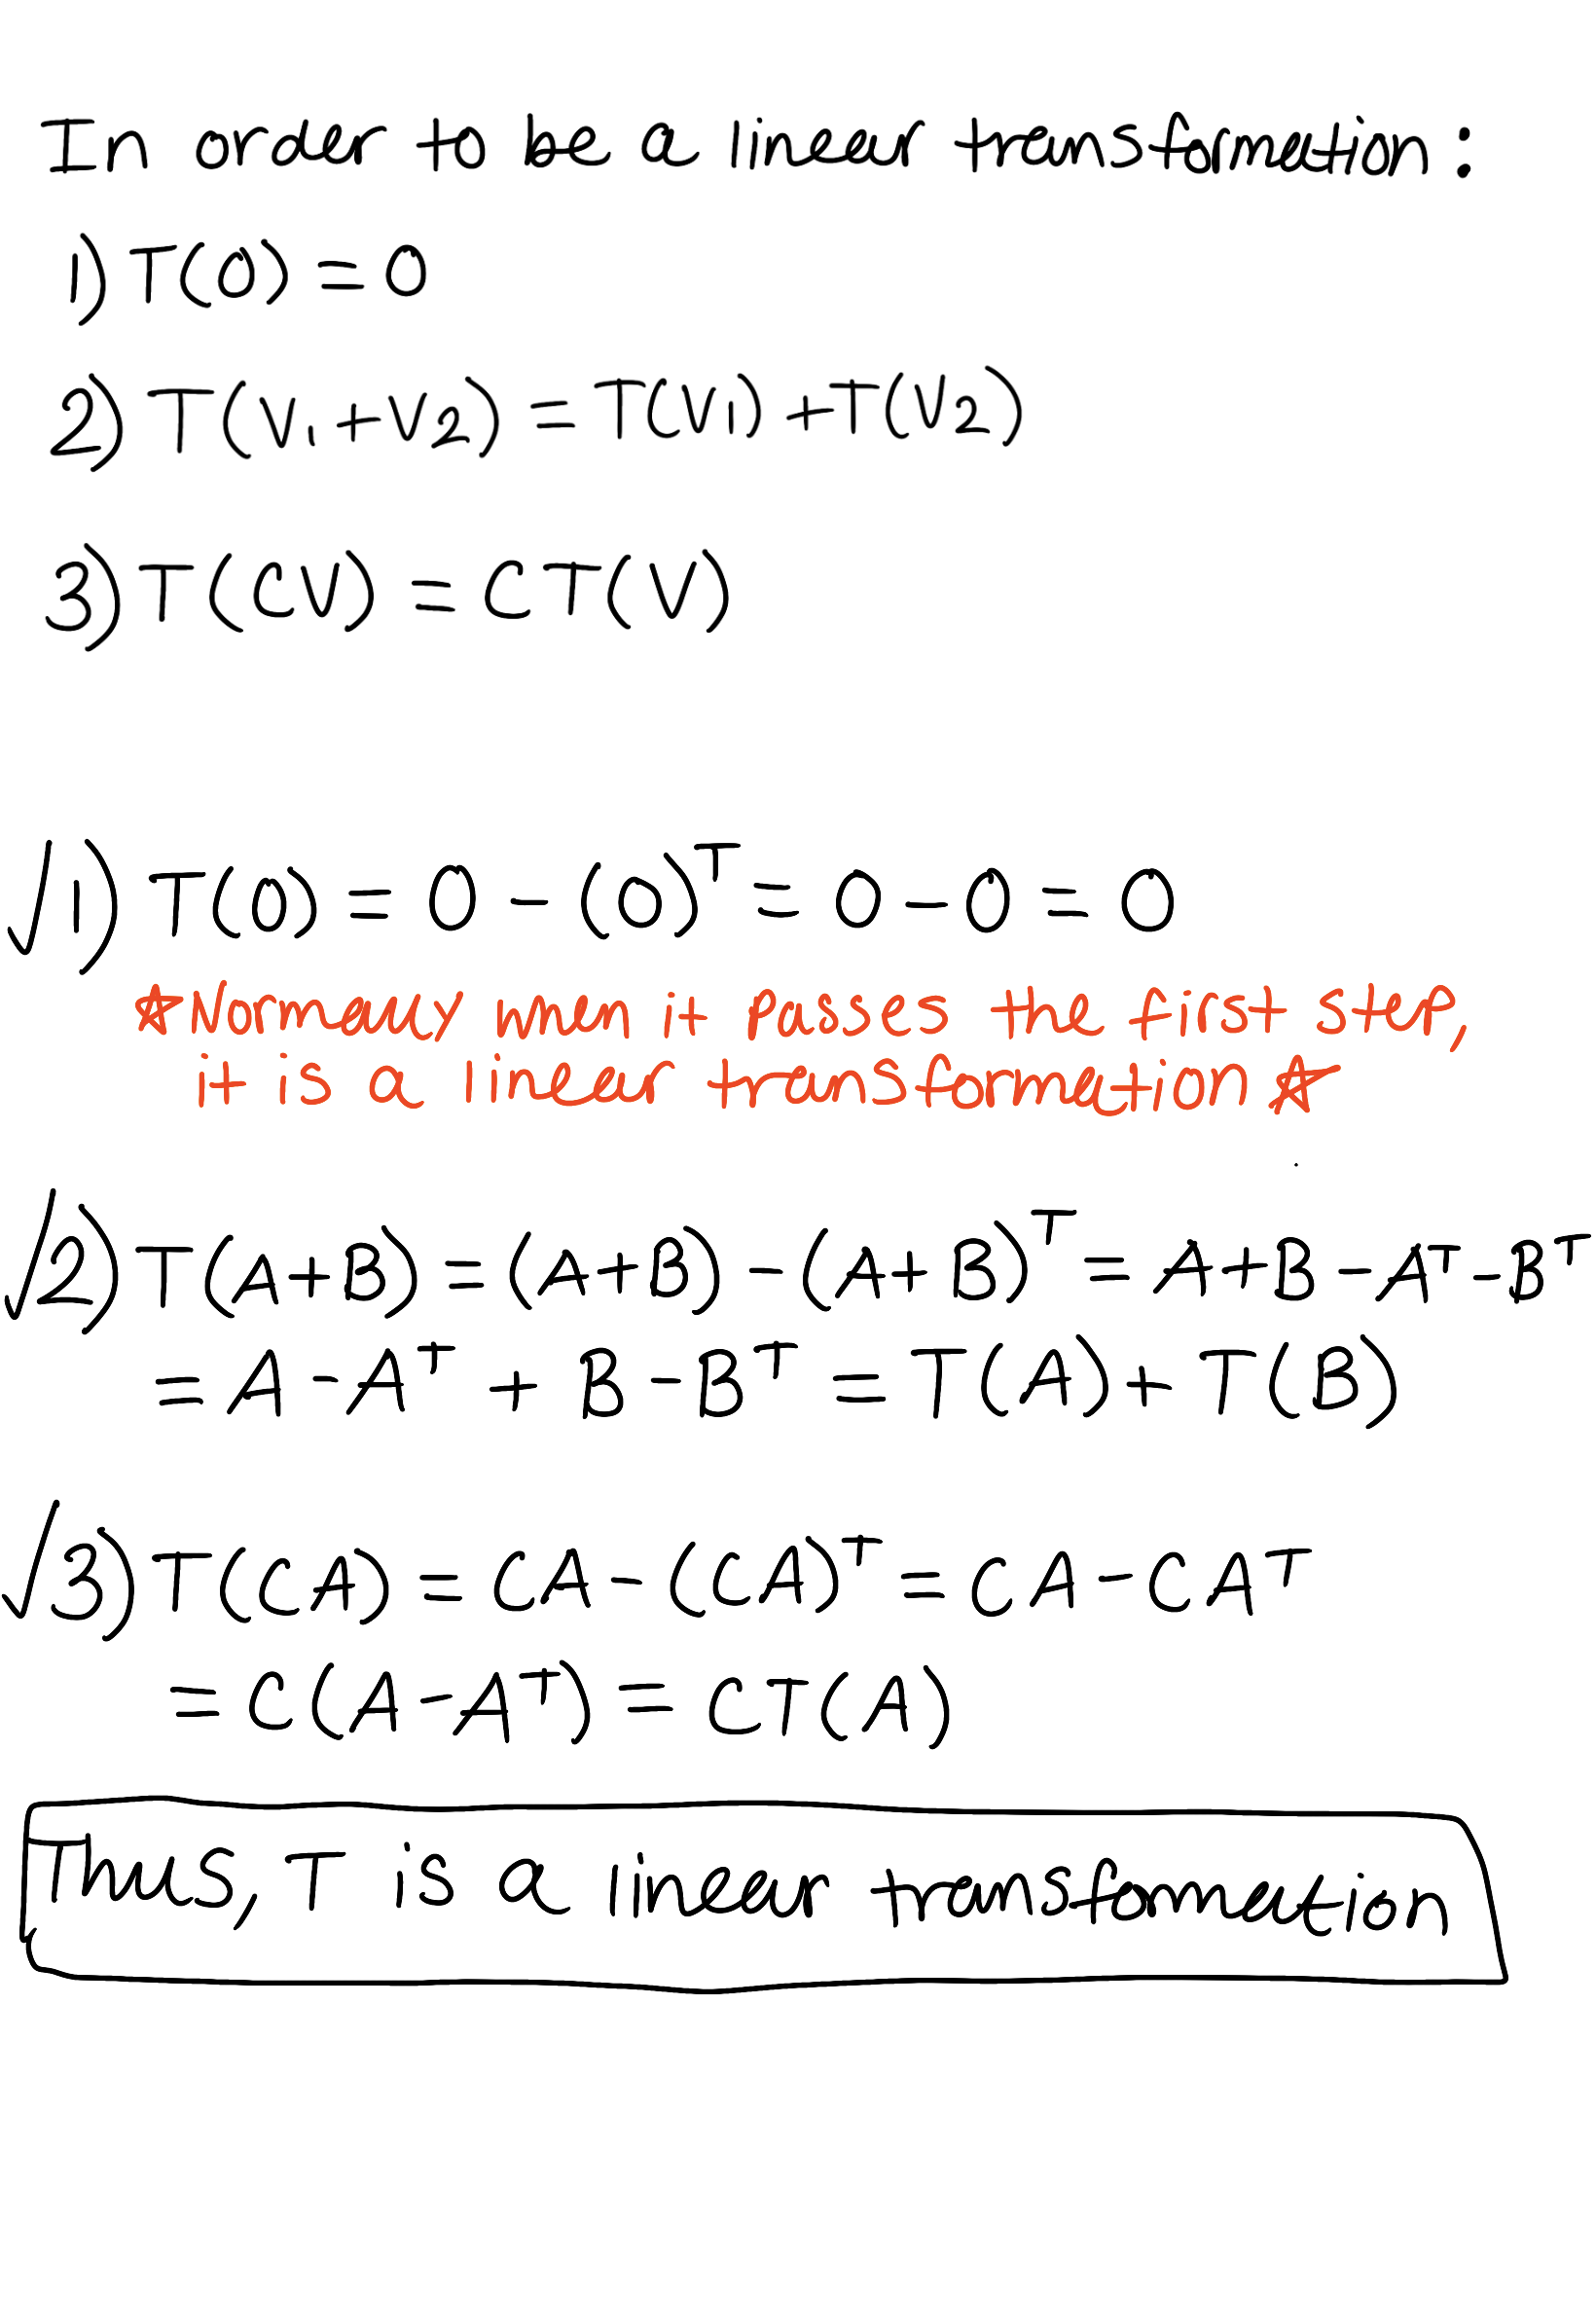 In order to be a linear transformation:
1) T(0) = 0
2) T(V₁+V2) = T(V1)+T(V2)
3) T(CV) = CT(V)
√1) T(0) = 0 - (0)ᵀ = 0 - 0 = 0
☆Normally when it passes the first step,
it is a linear transformation☆
√2) T(A+B) = (A+B) - (A+B)ᵀ = A+B-Aᵀ-Bᵀ
= A-Aᵀ + B-Bᵀ = T(A)+T(B)
√3) T(CA) = CA-(CA)ᵀ = CA-CAᵀ
= C(A-Aᵀ) = CT(A)
Thus, T is a linear transformation